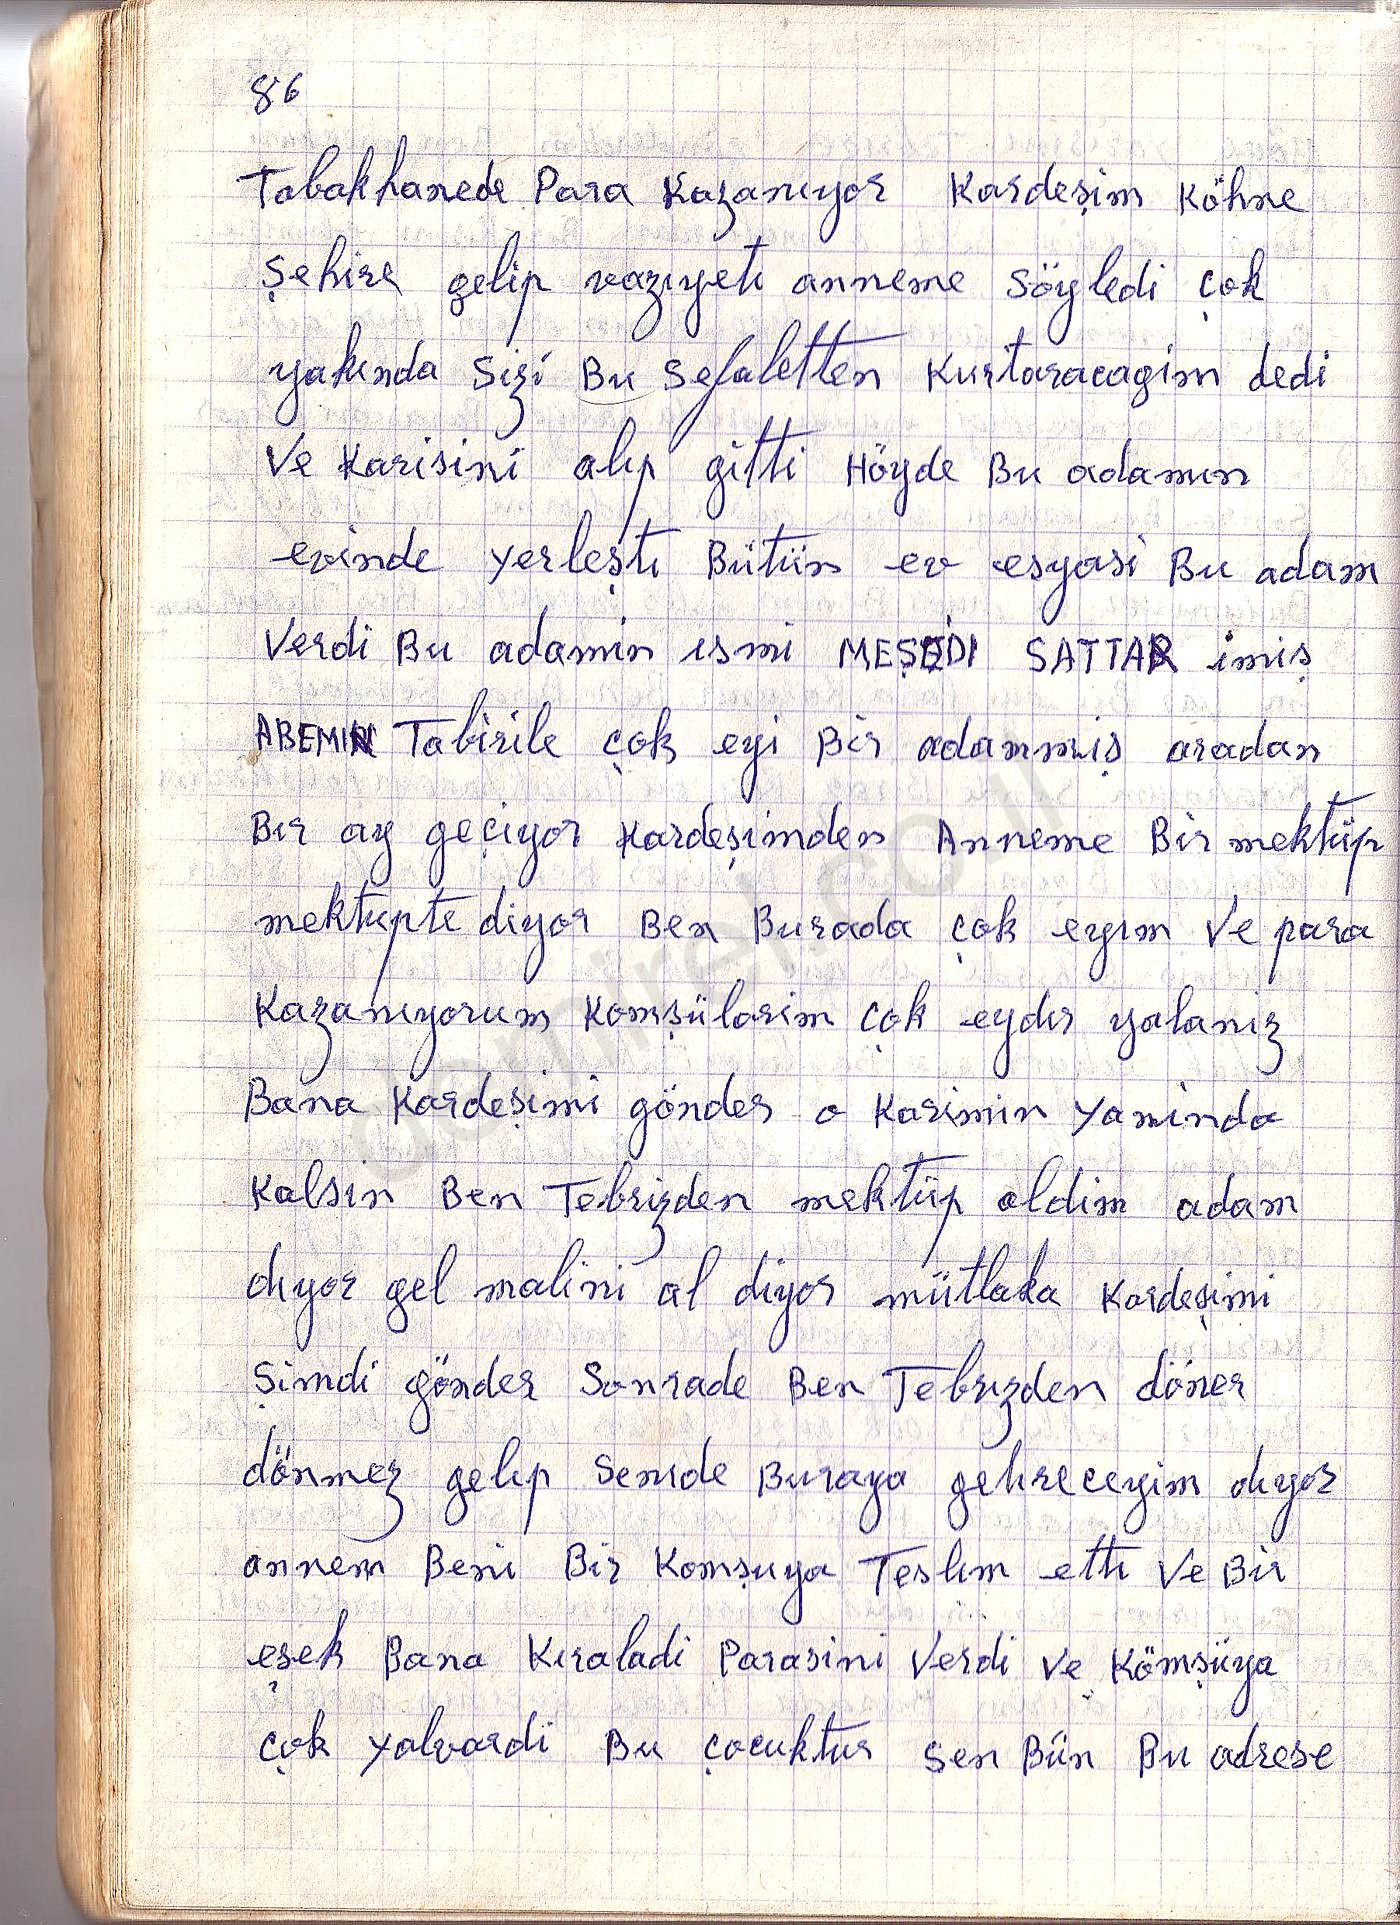 86
Tabakhanede Para Kazanıyor Kardeşim Köhne
Şehire gelip vazıyetı anneme Söyledi çok
yakında Sizi Bu Sefaletten Kurtaracagim dedi
Ve Karisini alıp gitti Höyde Bu adamın
evinde yerleştı Bütün ev esyasi Bu adam
Verdi Bu adamin ismi MEŞEDİ SATTAR imiş
ABEMIN Tabirile çok eyi Bir adammiş aradan
Bır ay geçiyor Kardeşimden Anneme Bir mektüp
mektupte diyor Ben Burada çok eyım Ve para
Kazanıyorum Komşülarim çok eydır yalaniz
Bana Kardeşimi gönder o Karimin Yaninda
Kalsin Ben Tebrizden mektüp aldim adam
dıyor gel malini al diyor mütlaka Kardeşimi
Şimdi gönder Sonrade Ben Tebrızden döner
dönmez gelıp Senide Buraya getireceyim dıyor
annem Beni Bir Komşuya Teslım ettı Ve Bir
eşek Bana Kıraladi Parasini Verdi ve Kömşüya
çok yalvardi Bu çocuktur Sen Bün Bu adrese
demirel.co.il